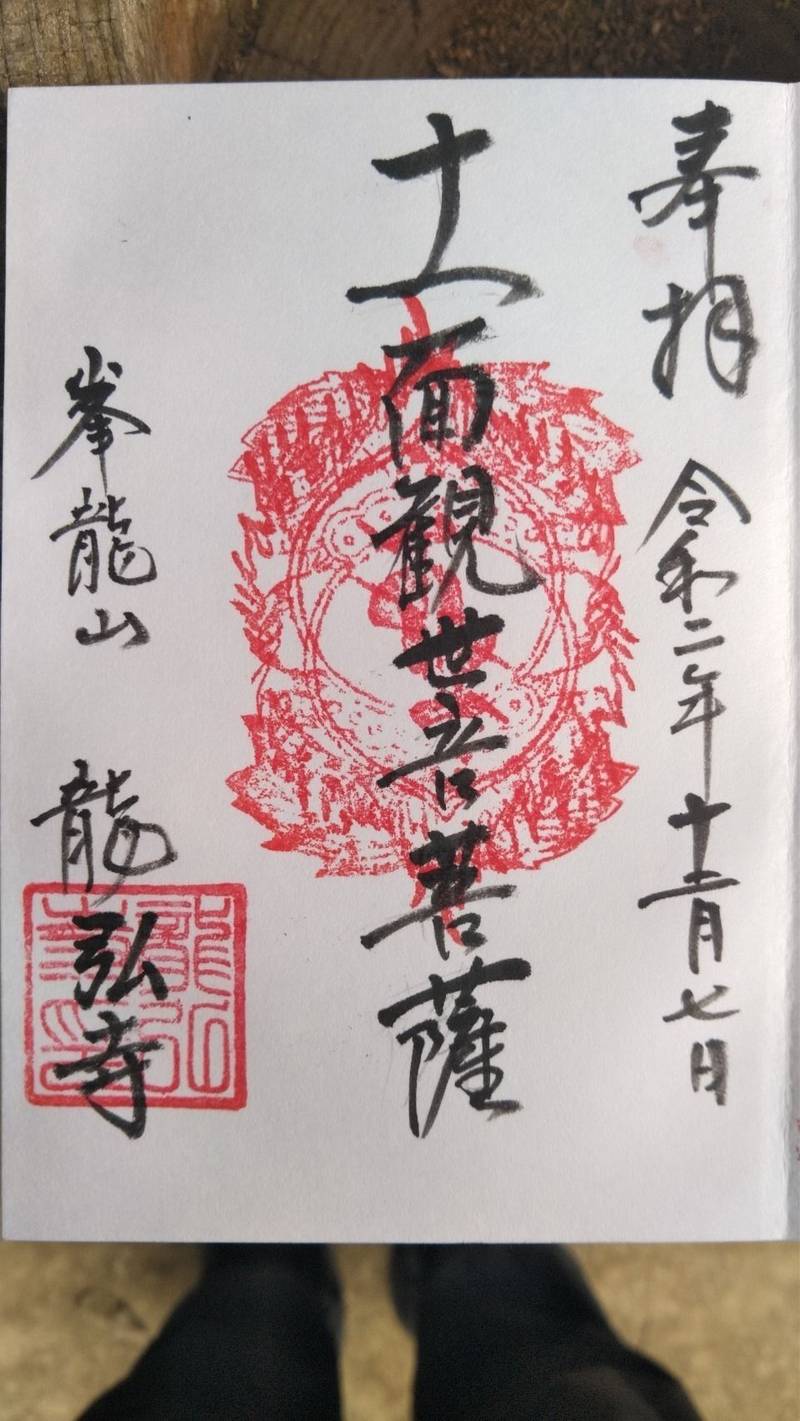 奉拝
令和二年十一月七日
十一面観世音菩薩
峯龍山
龍弘寺